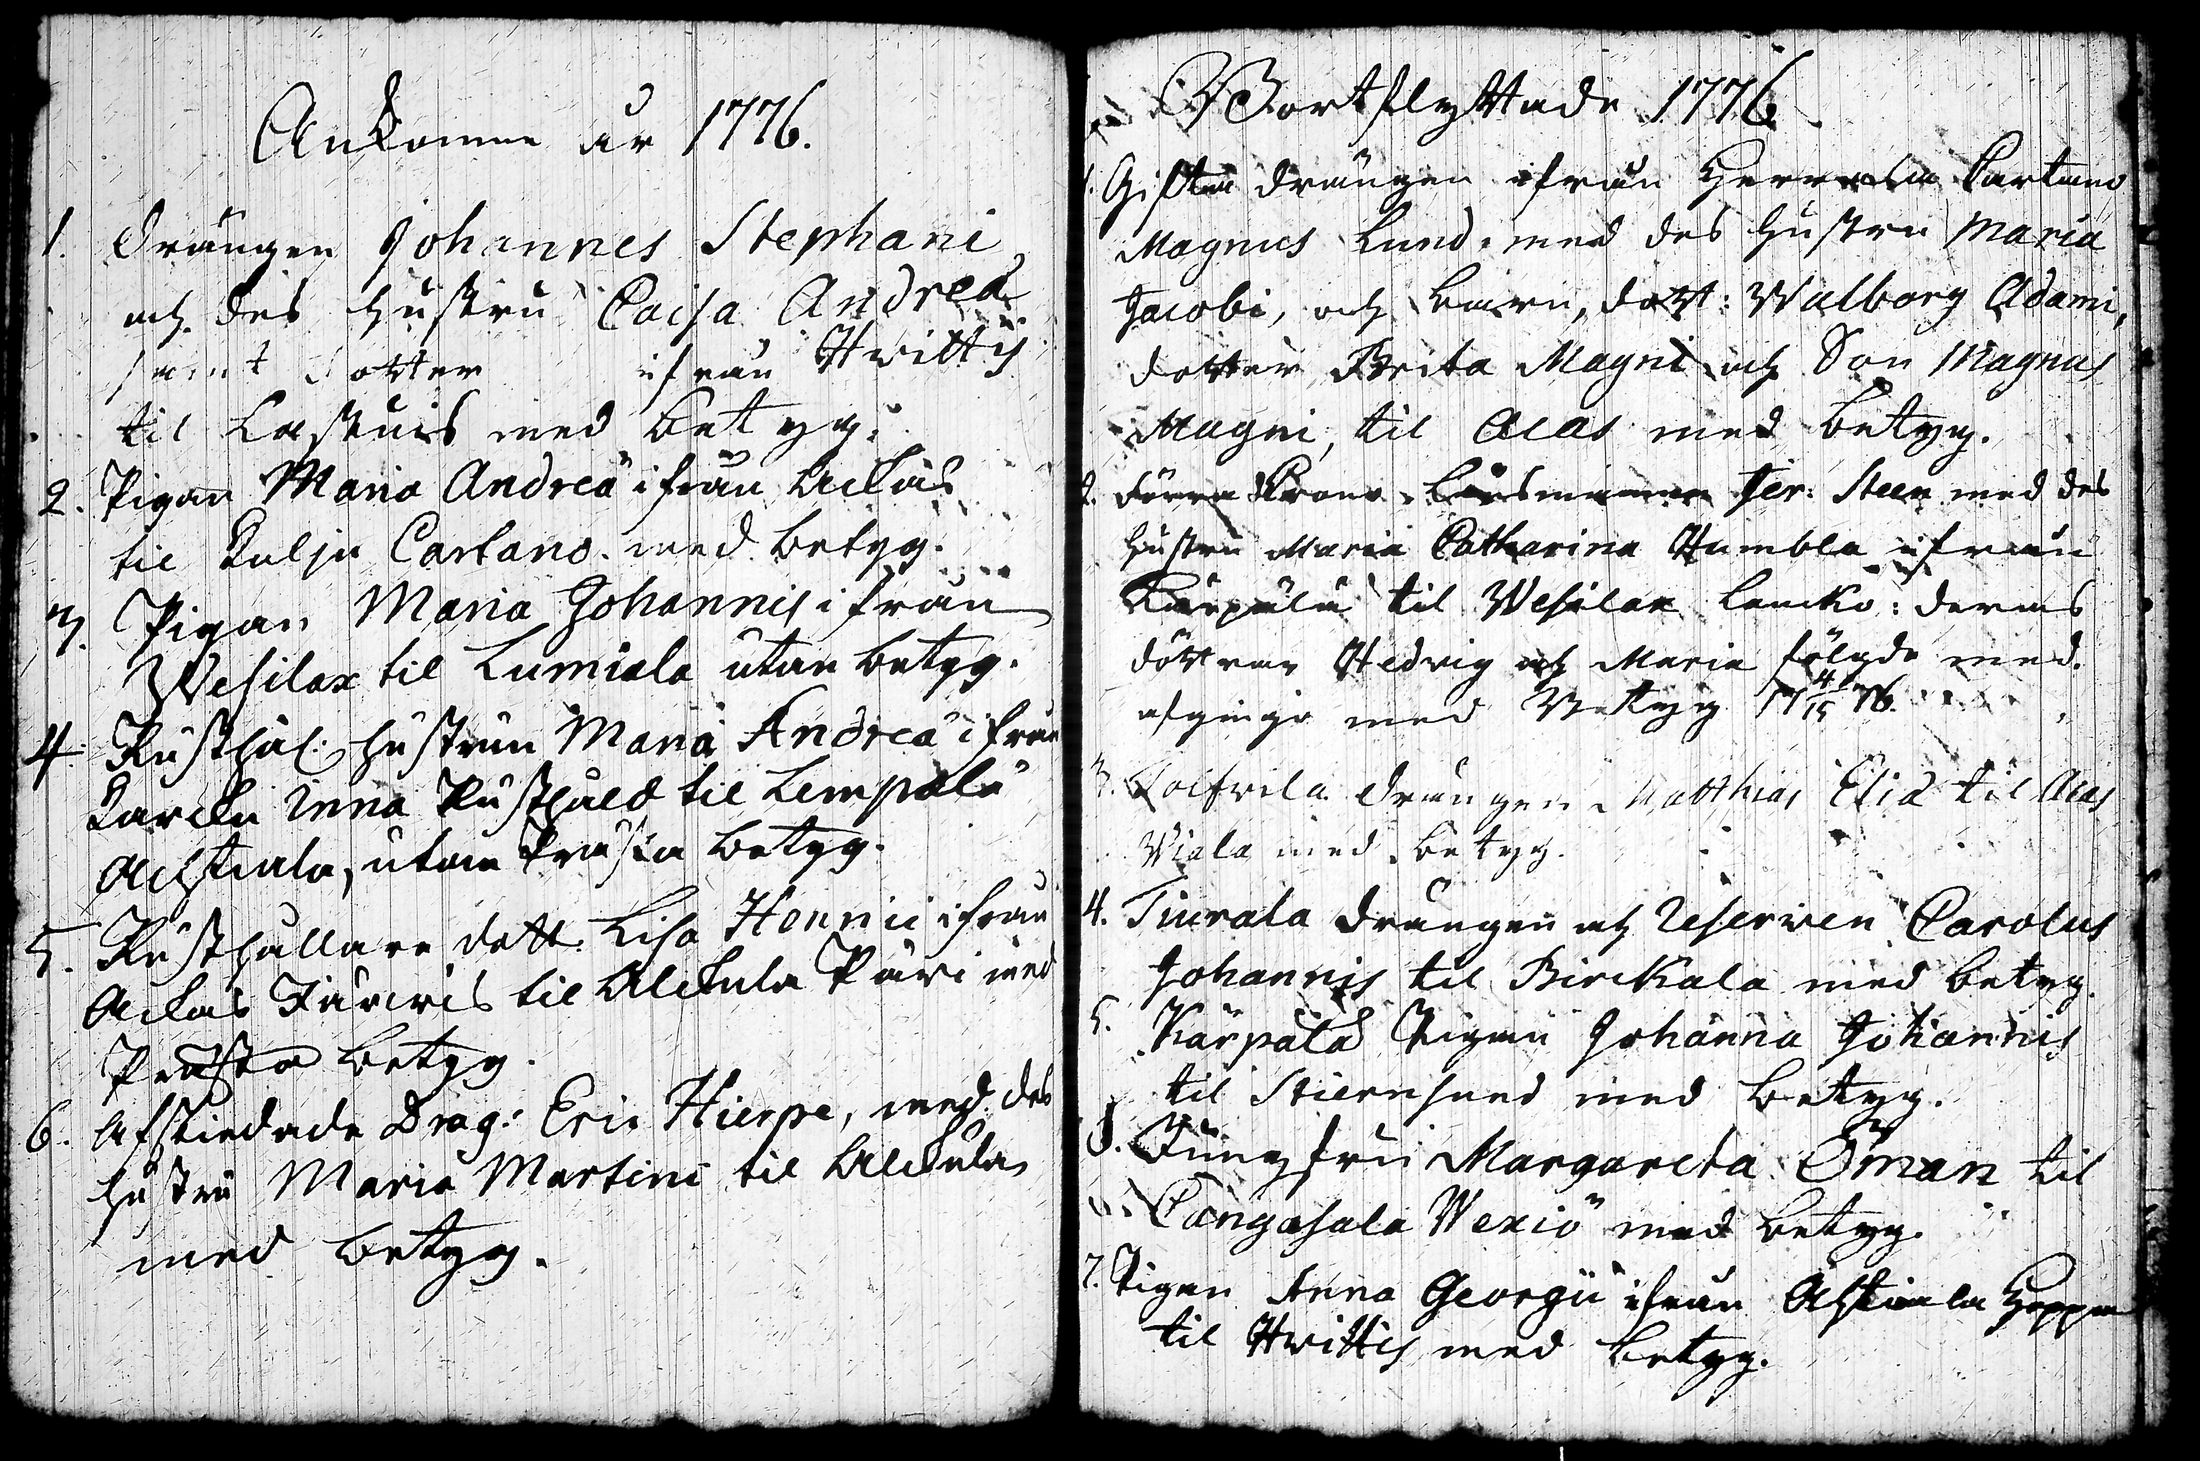 Ankomne år 1776.
1. Drängen Johannes Stephani
och des hustru Caisa Andreæ
samt dotter ifrån Hvittis
til Laskuis med betyg.
2. Pigan Maria Andreä ifrån Ackas
til Kulju Cartano med betyg.
3. Pigan Maria Johannis ifrån
Wesilax til Lumiala utan betyg.
4 Rusthål: hustrun Maria Andreä ifrån
Inna Rusthåld til Lempälä
utan Prästa betyg.
5. Rusthållare dott: Lisa Henrici ifrån
Ackas til Alckula Päri med
Prästa betyg.
6. Afskiedade Drag: Eric Hierpe, med des
hustru Maria Martini til Alckula
med betyg.
Bortflyttade 1776
1. Gifta drängen ifrån Herrala Cartano
Magnus Lund, med des hustru Maria
Jacobi, och barn, dott: Walborg Adami,
dotter Brita Magni och Son Magnus
Magni, til Acas med betyg.
2. Förra Krono Länsmannen Jer: Steen med des
hustru Maria Catharina Humbla ifrån
Kärpälä til Wesilax Laucko: deras
döttrar Hedvig och Maria fölgde med.
afgingo med Betyg 17 4/15 76.
3. drängen Matthias Eliæ til Acas
Wiala med betyg.
4. Tiurala drängen och Reserven Carolus
Johannis til Birckala med betyg.
5. Kärpälä Pigan Johanna Johannis
til Stiernsund med betyg.
6. Jungfru Margareta Öman til
Cangasala Wexiö med betyg.
7. Pigan Anna Georgii ifrån Ahtiala
til Hvittis med betyg.